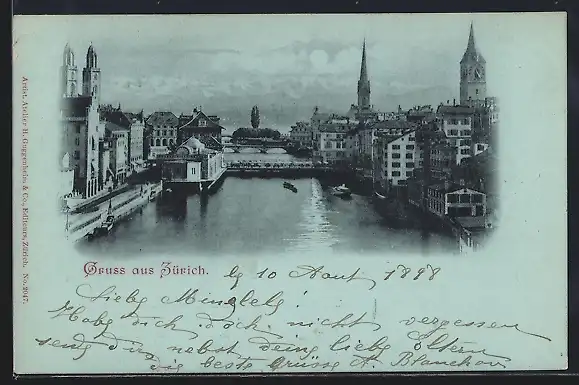 Gruss aus Zürich.
10 Août 1898
Liebe
Habe dich doch nicht vergessen
sende dir nebst deine liebe Eltern
die beste Grüsse A. Blanchou
Artist. Atelier H. Guggenheim & Co., Editeurs, Zürich. No. 2047.